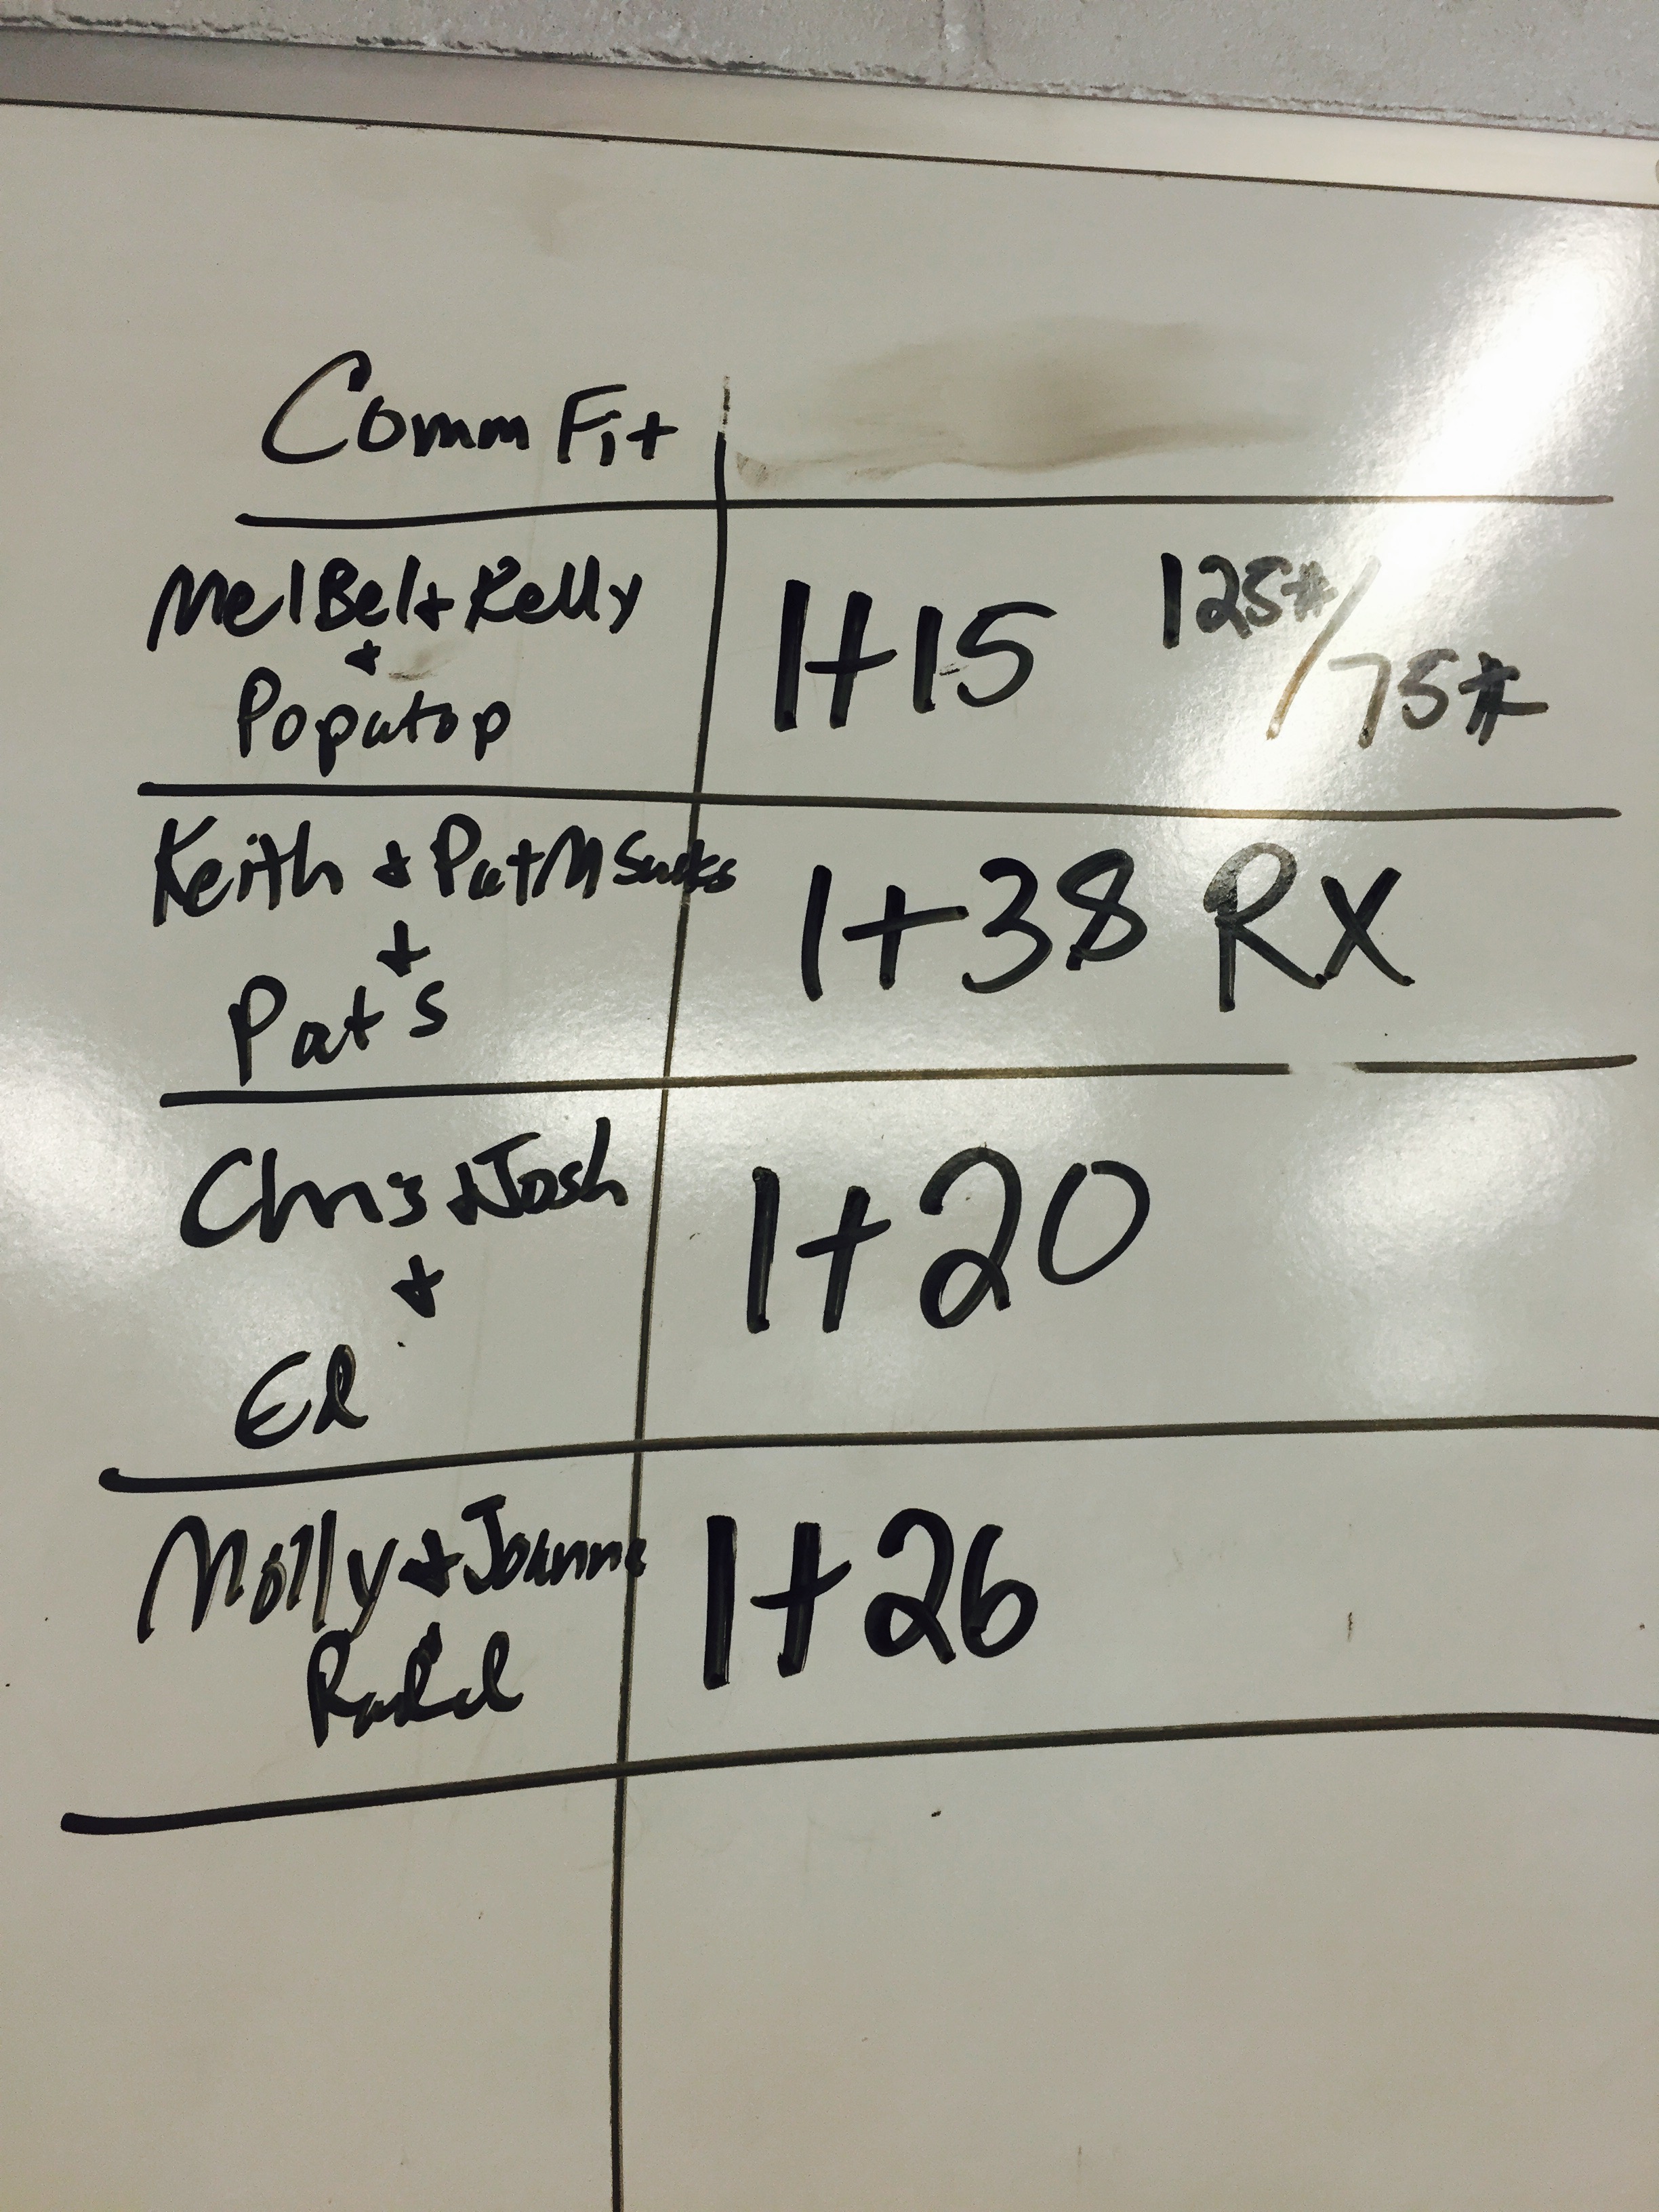 Comm Fit
Mel Bel + Kelly
+
Popatop
1+15 125#/75#
Keith + Pat M Sucks
+
Pat S
1+38 RX
Chris + Josh
+
Ed
1+20
Molly + Joanne
1+26